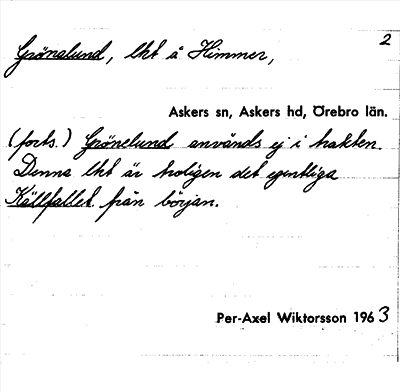 2
Grönalund, lht å Himmer,
Askers sn, Askers hd, Örebro län.
(forts.) Grönelund används ej i trakten.
Denna lht är troligen det egentliga
Källfallet från början.
Per-Axel Wiktorsson 1963